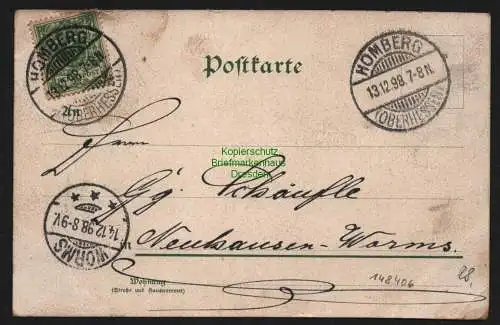 HOMBERG
13.12.98.7-8N.
(OBERHESSEN)
Postkarte
HOMBERG
13.12.98.7-8N.
(OBERHESSEN)
Kopierschutz
Briefmarkenhaus
Dresden
Herrn
Gg. Schäufle
in Neuhausen-Worms.
14.12.98.8-9V.
WORMS
Wohnung
(Straße und Hausnummer)
148406